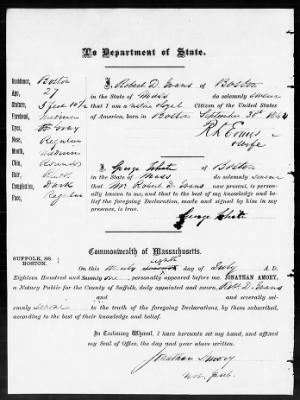 To Department of State.
Residence, Boston
Age, 27
Stature, 5 feet 10½
Forehead, medium
Eyes,
Nose, Regular
Mouth, medium
Chin, Round
Hair, Dark
Complexion, Dark
Face, Regular
I, Robert D. Evans of Boston
in the State of Mass do solemnly swear
that I am a native & loyal Citizen of the United States
of America, born in Boston September
wife
I, George White of Boston
in the State of Mass do solemnly swear
that Mr Robert D. Evans now present, is personally
known to me, and that to the best of my knowledge and belief
the foregoing Declaration, made and signed by him in my
presence, is true.
George White
Commonwealth of Massachusetts.
SUFFOLK, SS.
BOSTON.
On this twenty eighth day of July A. D.
Eighteen Hundred and Seventy one, personally appeared before me, JONATHAN AMORY,
a Notary Public for the County of Suffolk, duly appointed and sworn, Robt D. Evans
and and severally solemnly
to the truth of the foregoing Declarations, by them subscribed,
according to the best of their knowledge and belief.
In Testimony Whereof, I have hereunto set my hand, and affixed
my Seal of Office, the day and year above written.
Jonathan Amory
Not. Pub.